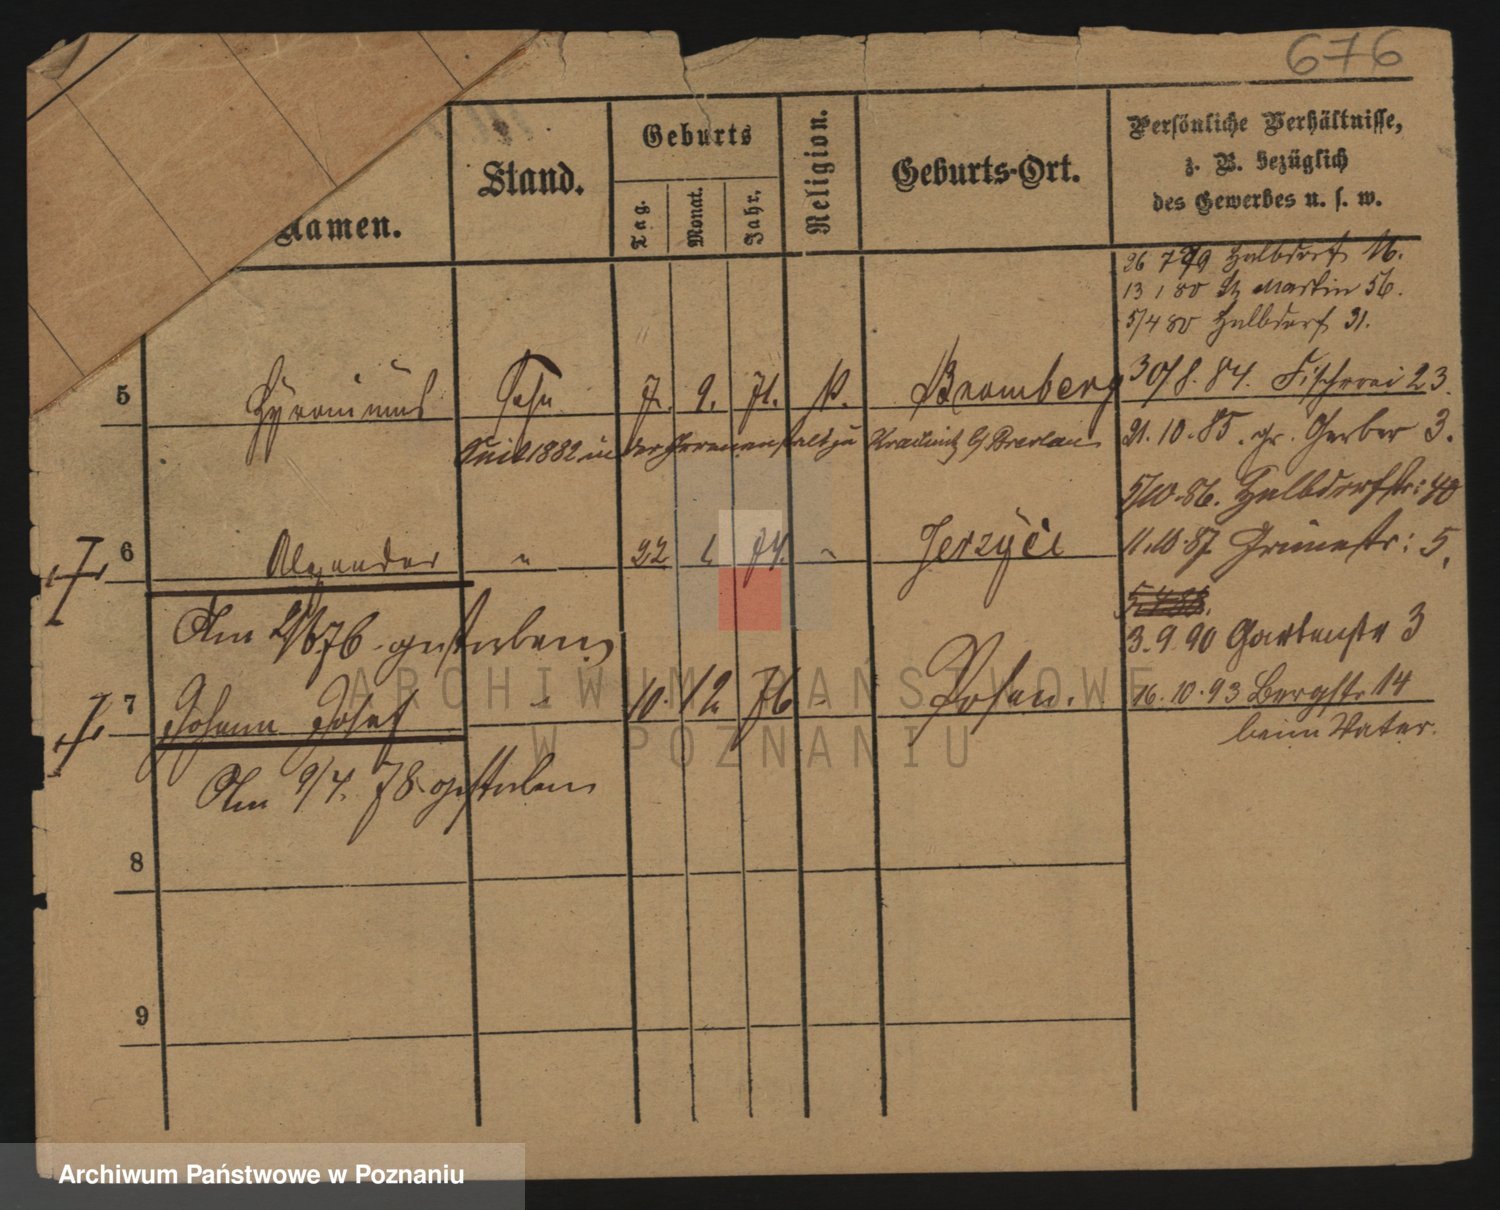 676
Namen.
Stand.
Geburts
Tag.
Monat.
Jahr.
Religion.
Geburts-Ort.
Persönliche Verhältnisse,
z. B. bezüglich
des Gewerbes u. s. w.
26 7 79 Halbdorf 16.
13 1 80 St Martin 56.
5/4 80 Halbdorf 31.
5 Hyronimus Sohn 7. 9. 71. k. Bromberg
30/8. 84. Fischerei 23.
1882 in der Irrenanstalt zu Breslau
21. 10. 85. gr. Gerber 3.
5/10. 86. Halbdorfstr: 40
6 Alexander " 22 1 74. " Jerzyce
11.10.87 Grünestr: 5.
5.4.88.
Am 76 gestorben
3. 9. 90 Gartenstr 3
7 Johann Josef " 10. 12 76 " Posen.
16. 10. 93 Bergstr 14
beim Vater.
Am 9/4. 78 gestorben
8
9
ARCHIWUM PAŃSTWOWE
W POZNANIU
Archiwum Państwowe w Poznaniu